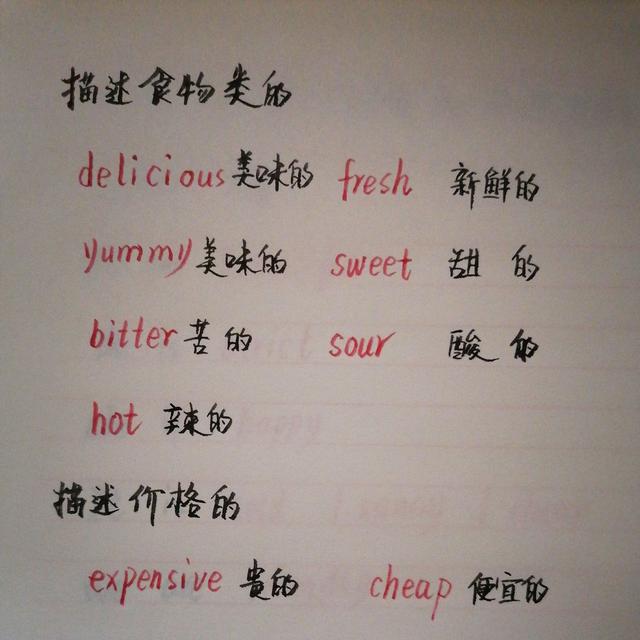 描述食物类的
delicious 美味的 fresh 新鲜的
yummy 美味的 sweet 甜的
bitter 苦的 sour 酸的
hot 辣的
描述价格的
expensive 贵的 cheap 便宜的